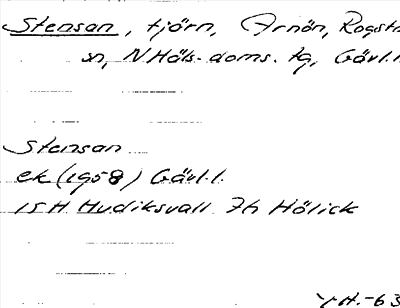 Stensan, tjärn, Arnön, Rogsta
sn, N Häls. doms. tg, Gävl.l.
Stensan
ek (1958) Gävl.l.
15H Hudiksvall 7h Hölick
Y.H.-63